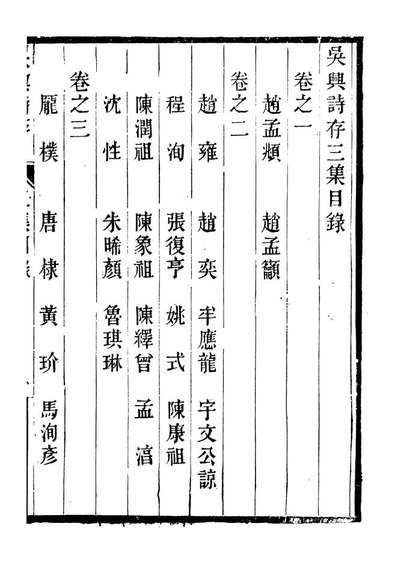 吳興詩存三集目錄
卷之一
趙孟頫　趙孟籲
卷之二
趙雍　趙奕　牟應龍　宇文公諒
程洵　張復亨　姚式　陳康祖
陳潤祖　陳象祖　陳繹曾　孟湻
沈性　朱晞顏　魯琪琳
卷之三
龎樸　唐棣　黃玠　馬洵彥